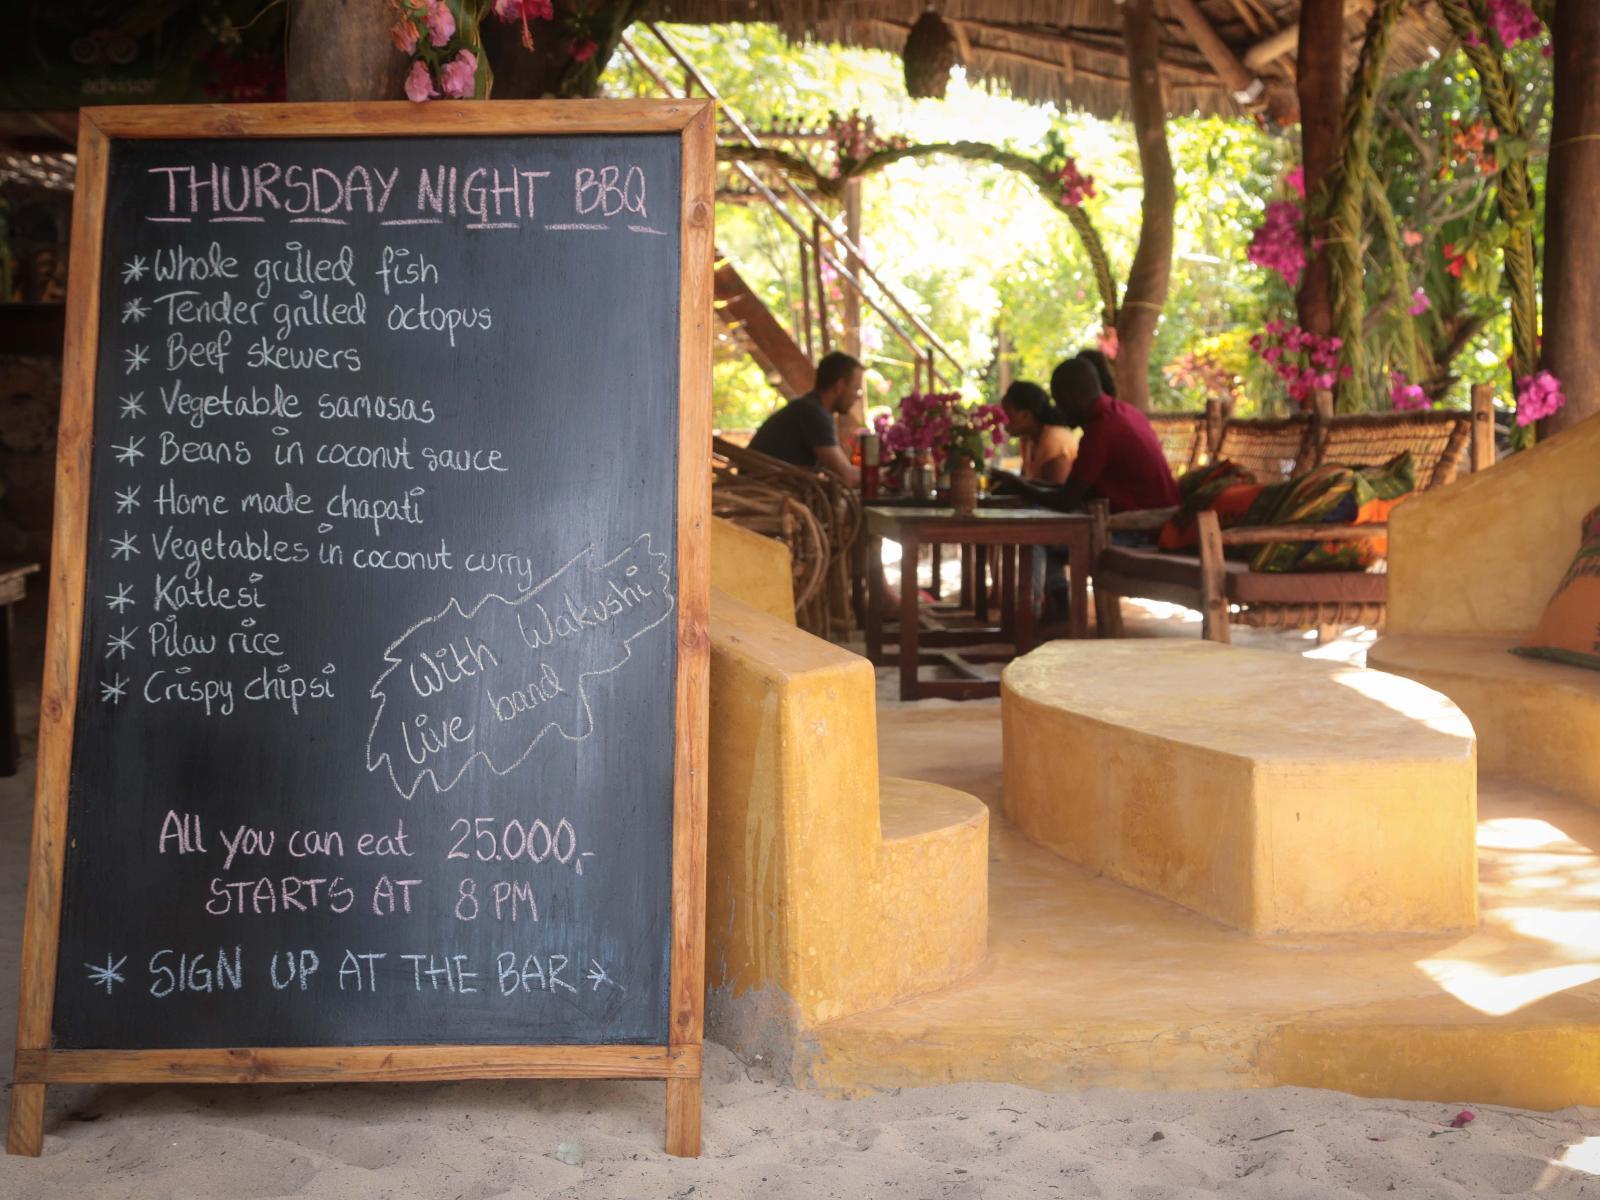 advisor
THURSDAY NIGHT BBQ
* Whole grilled fish
* Tender grilled octopus
* Beef skewers
* Vegetable samosas
* Beans in coconut sauce
* Home made chapati
* Vegetables in coconut curry
* Katlesi
* Pilau rice
* Crispy chipsi
With Wakushi
live band
All you can eat 25.000,-
STARTS AT 8 PM
* SIGN UP AT THE BAR *